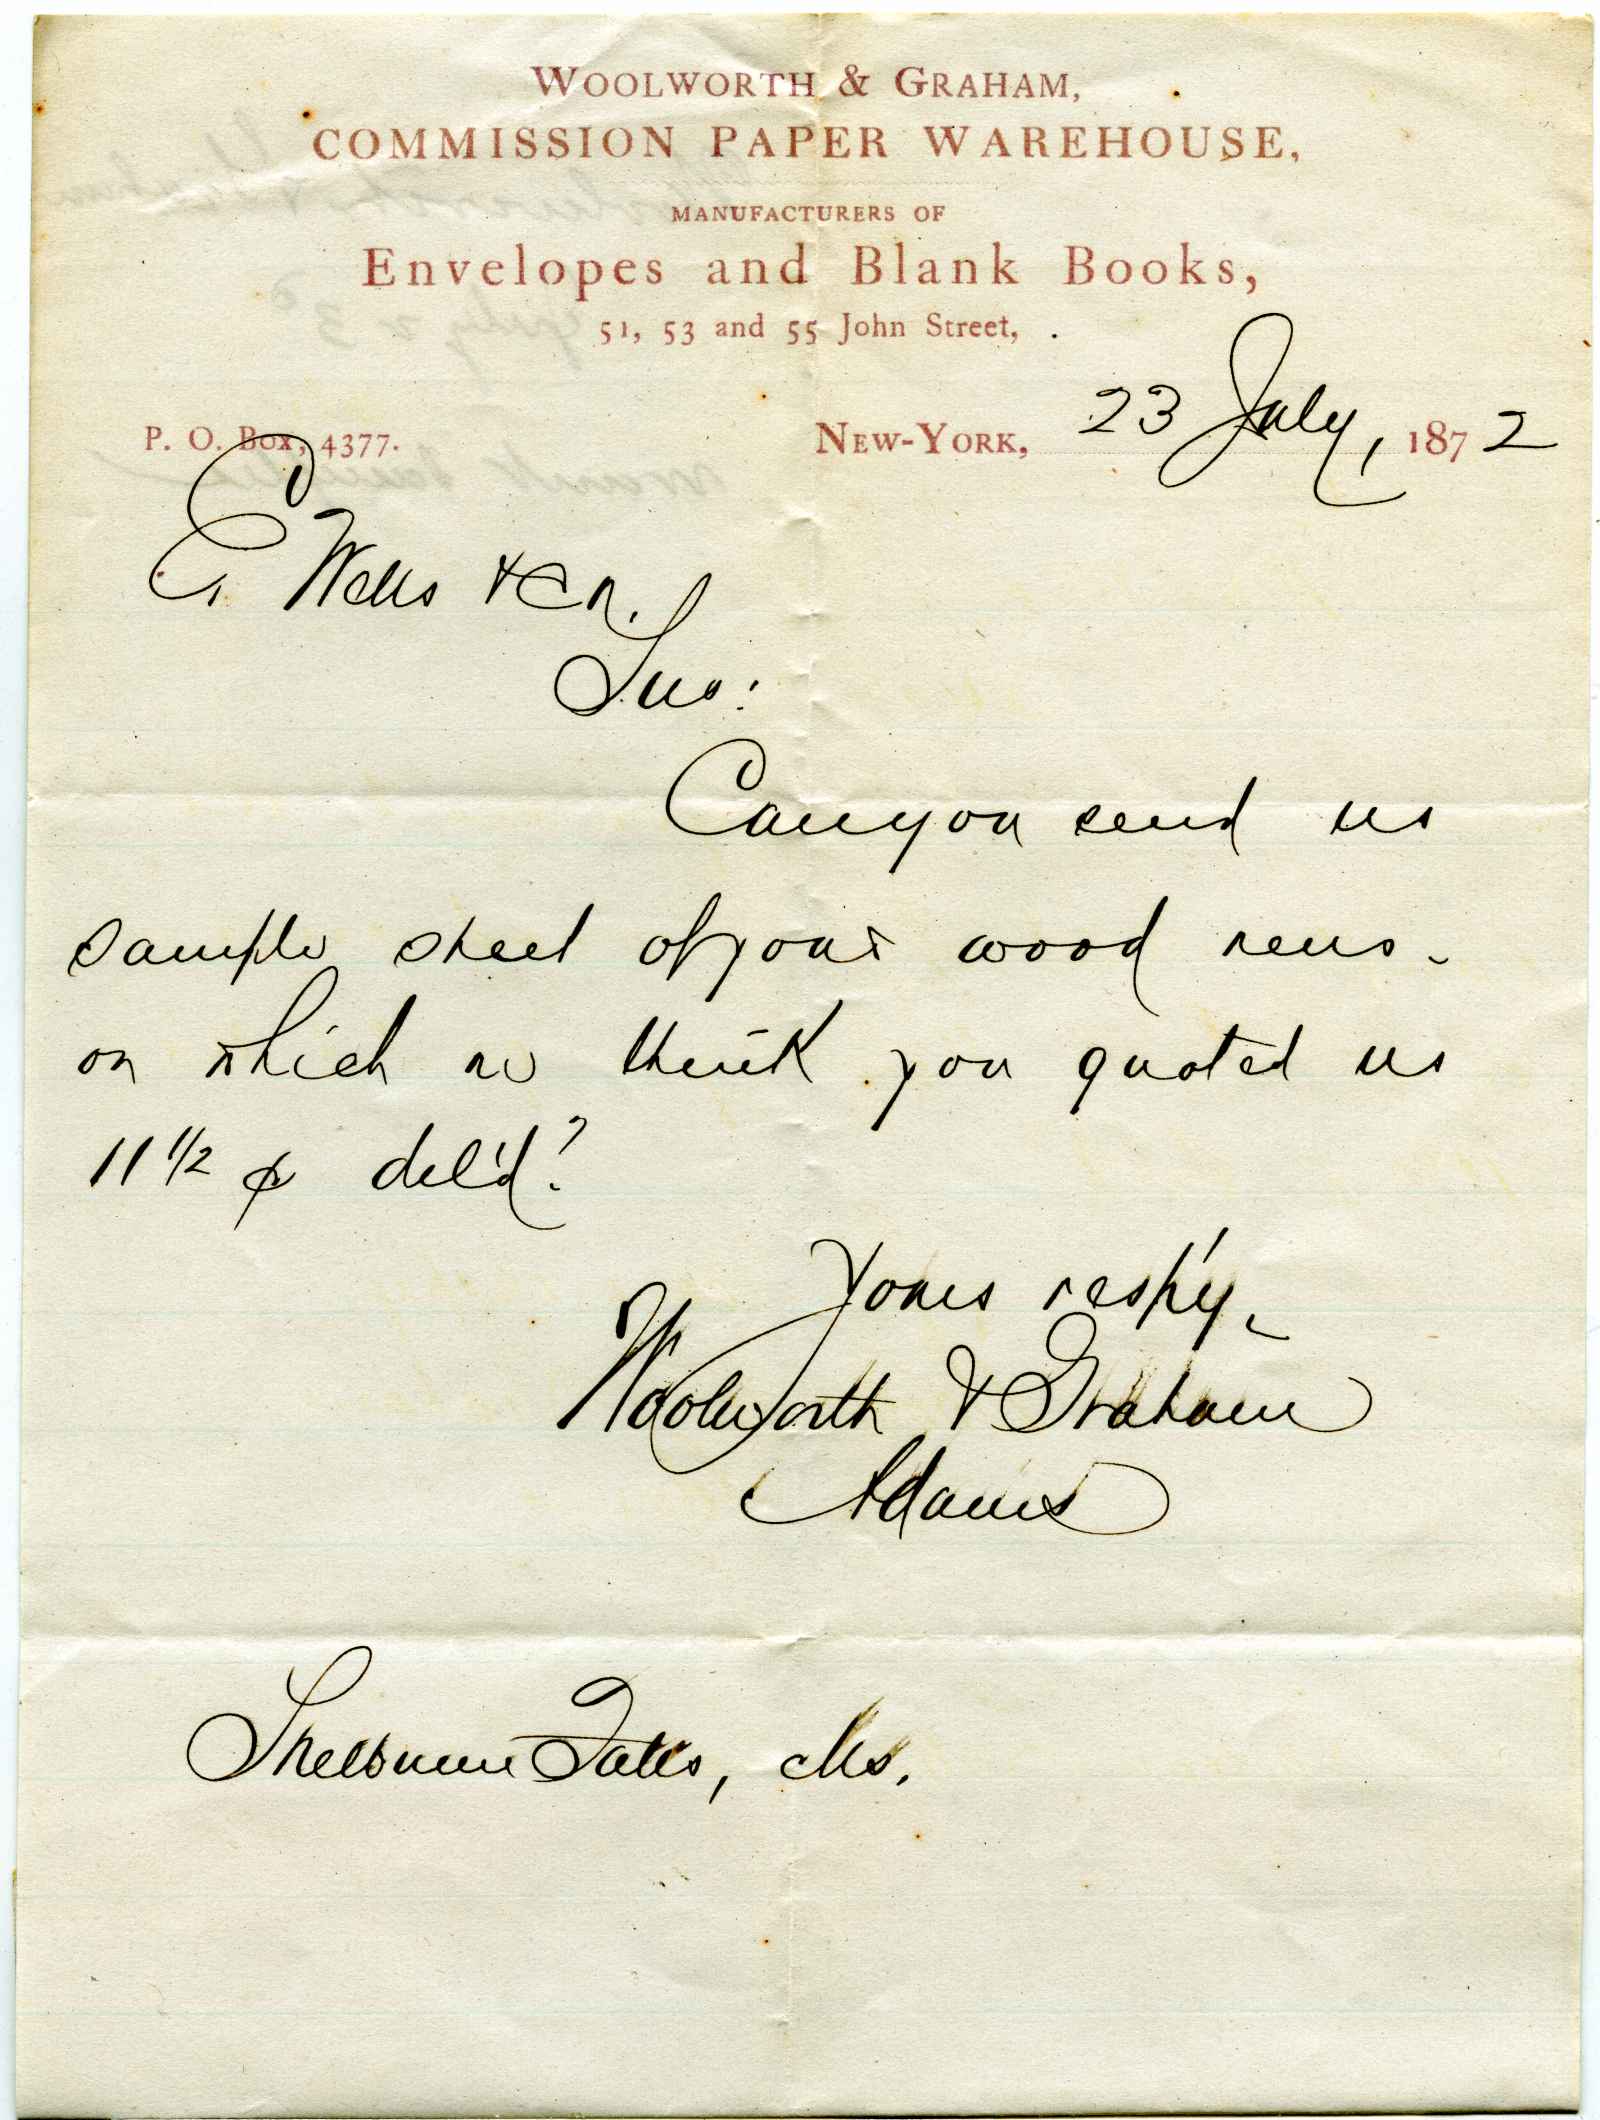 WOOLWORTH & GRAHAM,
COMMISSION PAPER WAREHOUSE,
MANUFACTURERS OF
Envelopes and Blank Books,
51, 53 and 55 John Street,
P. O. Box, 4377.
NEW-YORK, 23 July, 1872
E. Wells & Co.
Sirs:
Can you send us
sample sheet of your wood news -
on which we think you quoted us
11 1/2 ¢ del'd?
Yours resp'y,
Woolworth & Graham
Adams
Shelburne Falls, Ms.